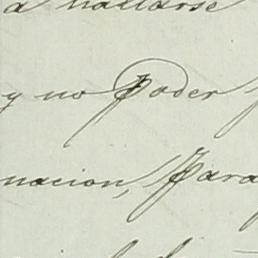 a hallarse
y no Poder
nacion, Para